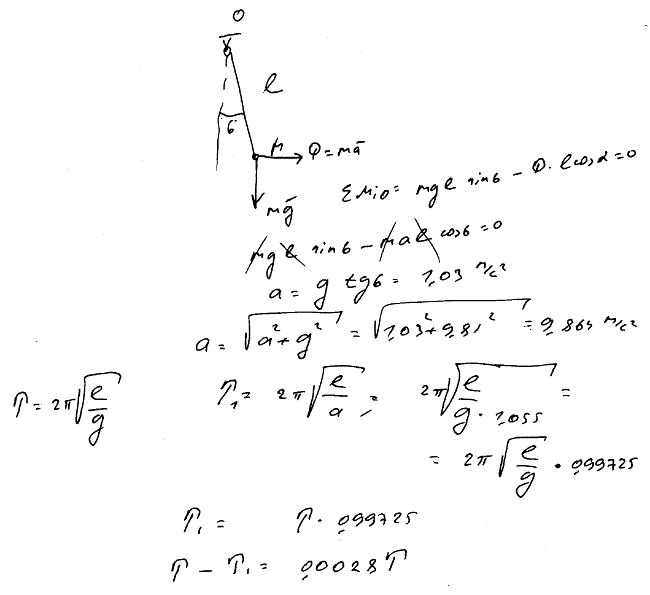 O
l
6
M Φ = mā
mḡ
ΣMio = mgl sin6 - Φ · l cosα = 0
mgl sin6 - mal cos6 = 0
a = g tg6 = 1,03 м/с²
a = √(a² + g²) = √(1,03² + 9,81²) = 9,864 м/с²
T = 2π√(l/g) T₁ = 2π√(l/a) = 2π√(l/(g · 1,055)) =
= 2π√(l/g) · 0,99725
T₁ = T · 0,99725
T - T₁ = 0,0028T